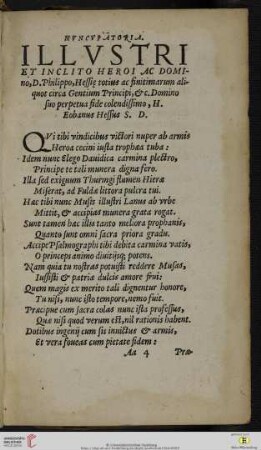 NVNCVPATORIA.
ILLVSTRI
ET INCLITO HEROI AC DOMI-
no, D. Philippo, Hessię totius ac finitimarum ali-
quot circa Gentium Principi, & c. Domino
suo perpetua fide colendissimo, H.
Eobanus Hessus S. D.
QVi tibi vindicibus victori nuper ab armis
Heroa cecini iusta trophæa tuba:
Idem nunc Elego Dauidica carmina plectro,
Principe te tali munera digna fero.
Illa sed exiguum Thuringi flumen Hieræ
Miserat, ad Fuldæ littora pulcra tui.
Hac tibi nunc Musis illustri Lanus ab vrbe
Mittit, & accipias munera grata rogat.
Sunt tamen hæc illis tanto meliora prophanis,
Quanto sunt omni sacra priora gradu.
Accipe Psalmographi tibi debita carmina vatis,
O princeps animo diuitijsq; potens.
Nam quia tu nostras potuisti reddere Musas,
Iussisti & patriæ dulcis amore frui:
Quem magis ex merito tali dignentur honore,
Tu nisi, nunc isto tempore, nemo fuit.
Præcipue cum sacra colas nunc ista professus,
Quæ nisi quod verum est, nil rationis habent.
Dotibus ingenij cum sis inuictus & armis,
Et vera foueas cum pietate fidem:
Aa 4 Præ-